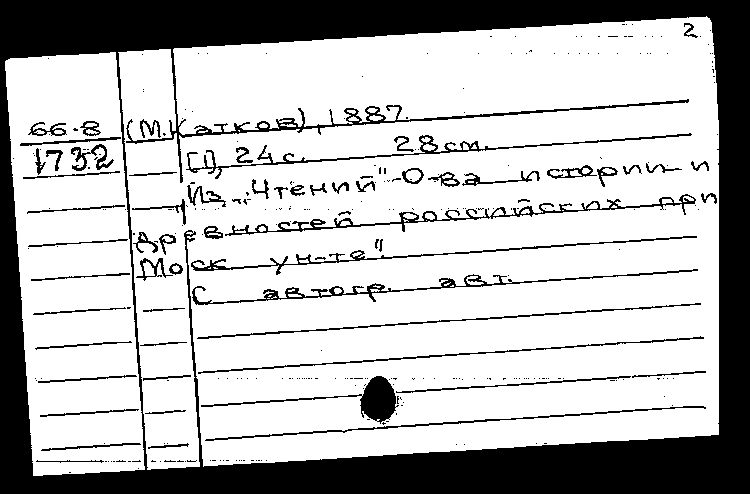 2
66-8 (М. Катков), 1887.
1732 [1], 24 с. 28 см.
„Из „Чтений"-О-ва истории и
древностей российских при
Моск ун-те".
С автогр. авт.